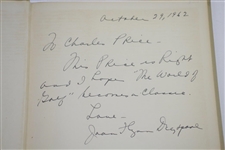 October 29, 1962
To Charles Price -
This Price is Right
and I hope "The World of
Golf" becomes a Classic.
Love -
Jean Flynn Deypool